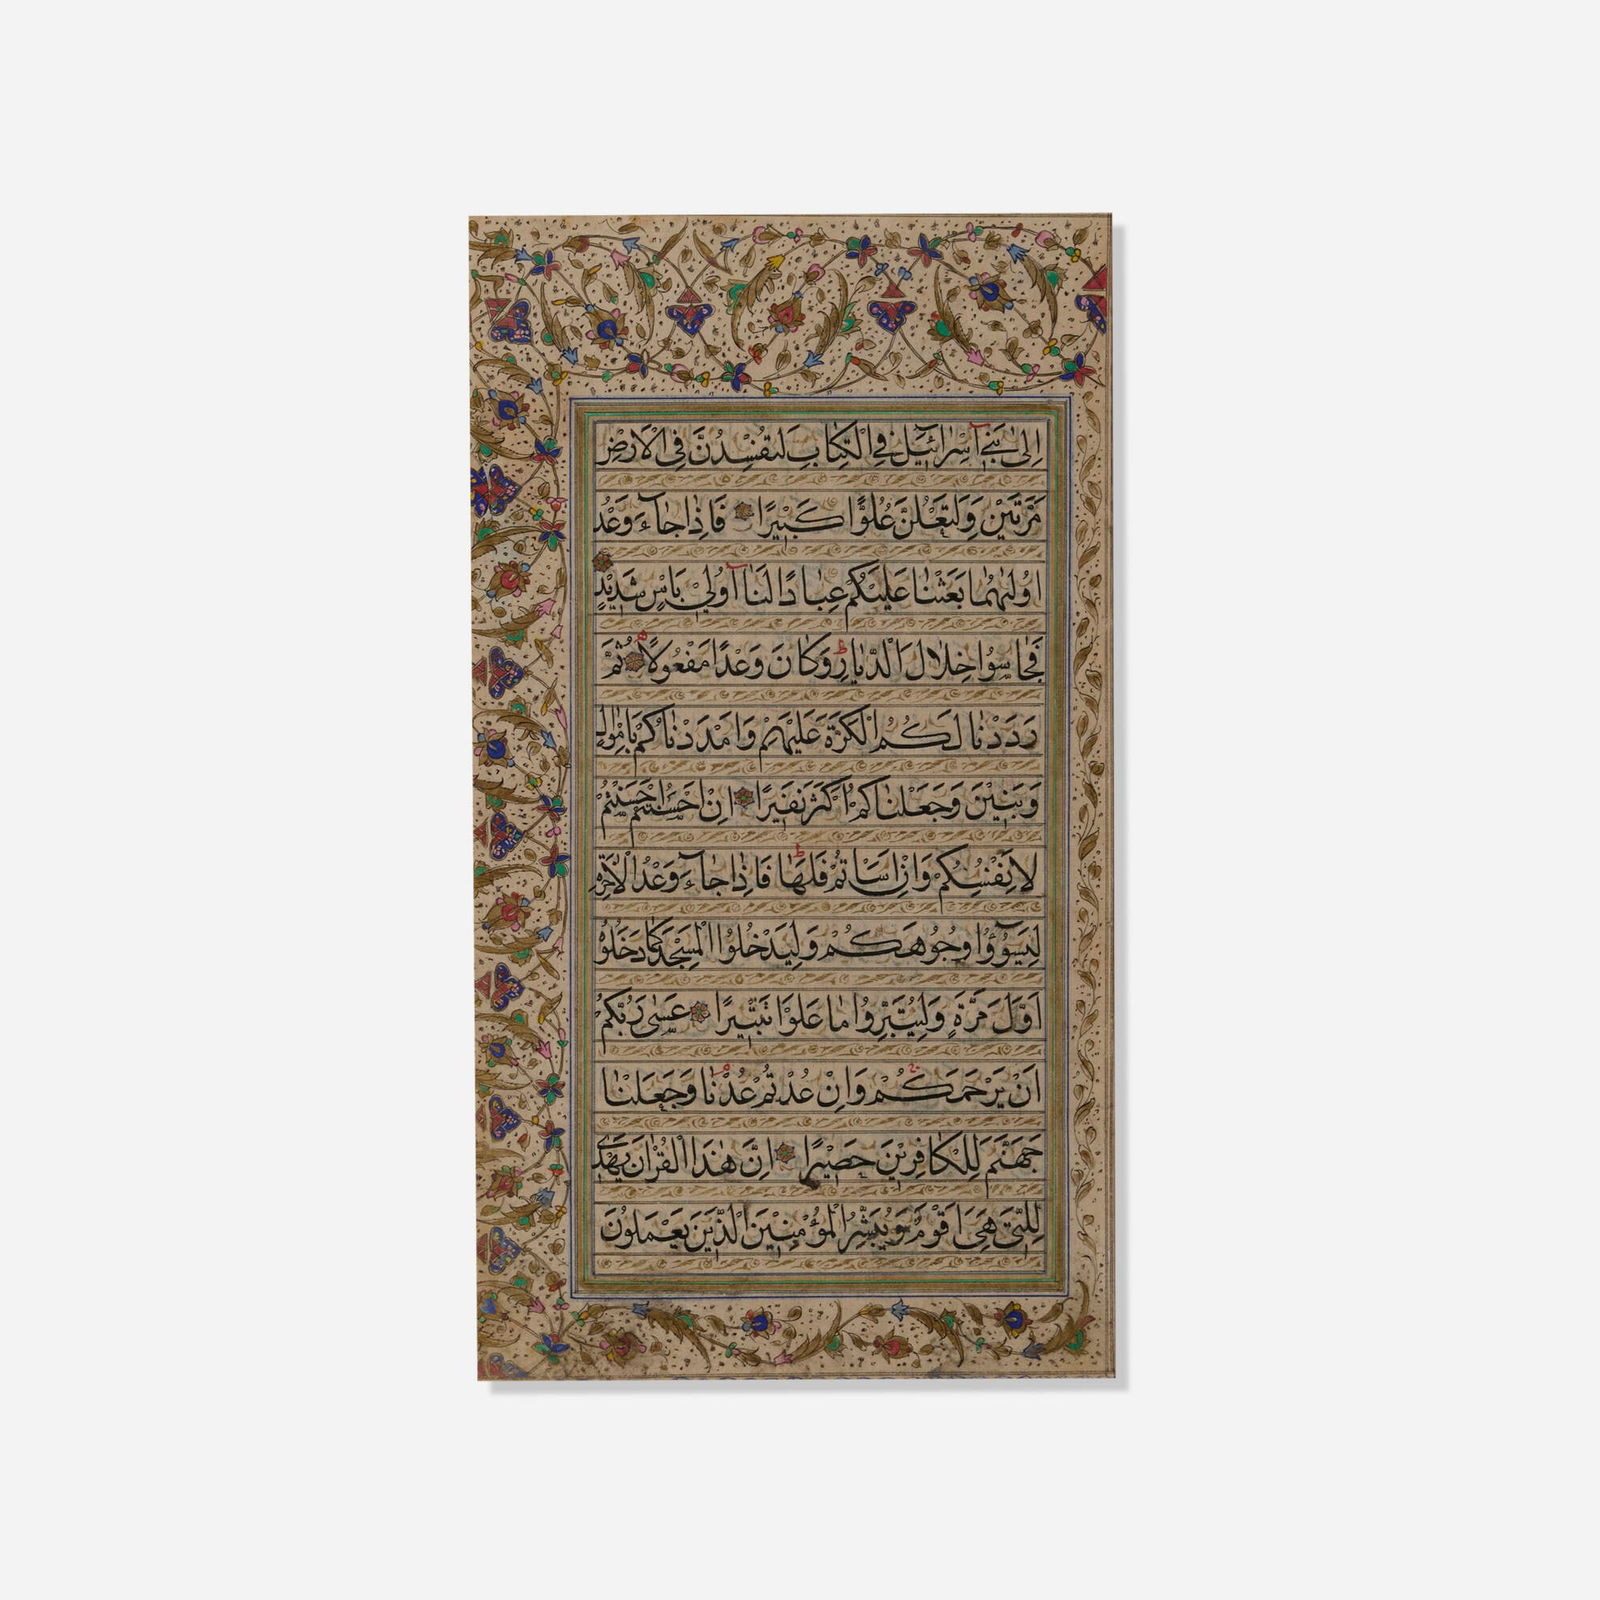 اِلىٰ بَنٓى اِسْرٰٓائٖيلَ فِى الْكِتَابِ لَتُفْسِدُنَّ فِى الْاَرْضِ
مَرَّتَيْنِ وَلَتَعْلُنَّ عُلُوًّا كَبٖيرًا فَاِذَا جَآءَ وَعْدُ
اُولٰيهُمَا بَعَثْنَا عَلَيْكُمْ عِبَادًا لَنَٓا اُولٖى بَاْسٍ شَدٖيدٍ
فَجَاسُوا خِلَالَ الدِّيَارِ ط وَكَانَ وَعْدًا مَفْعُولًا ثُمَّ
رَدَدْنَا لَكُمُ الْكَرَّةَ عَلَيْهِمْ وَاَمْدَدْنَاكُمْ بِاَمْوَالٍ
وَبَنٖينَ وَجَعَلْنَاكُمْ اَكْثَرَ نَفٖيرًا اِنْ اَحْسَنْتُمْ اَحْسَنْتُمْ
لِاَنْفُسِكُمْ وَاِنْ اَسَاْتُمْ فَلَهَا ط فَاِذَا جَآءَ وَعْدُ الْاٰخِرَةِ
لِيَسُوٓؤُا وُجُوهَكُمْ وَلِيَدْخُلُوا الْمَسْجِدَ كَمَا دَخَلُوهُ
اَوَّلَ مَرَّةٍ وَلِيُتَبِّرُوا مَا عَلَوْا تَتْبٖيرًا عَسٰى رَبُّكُمْ
اَنْ يَرْحَمَكُمْ وَاِنْ عُدْتُمْ عُدْنَا وَجَعَلْنَا
جَهَنَّمَ لِلْكَافِرٖينَ حَصٖيرًا اِنَّ هٰذَا الْقُرْاٰنَ يَهْدٖى
لِلَّتٖى هِىَ اَقْوَمُ وَيُبَشِّرُ الْمُؤْمِنٖينَ الَّذٖينَ يَعْمَلُونَ